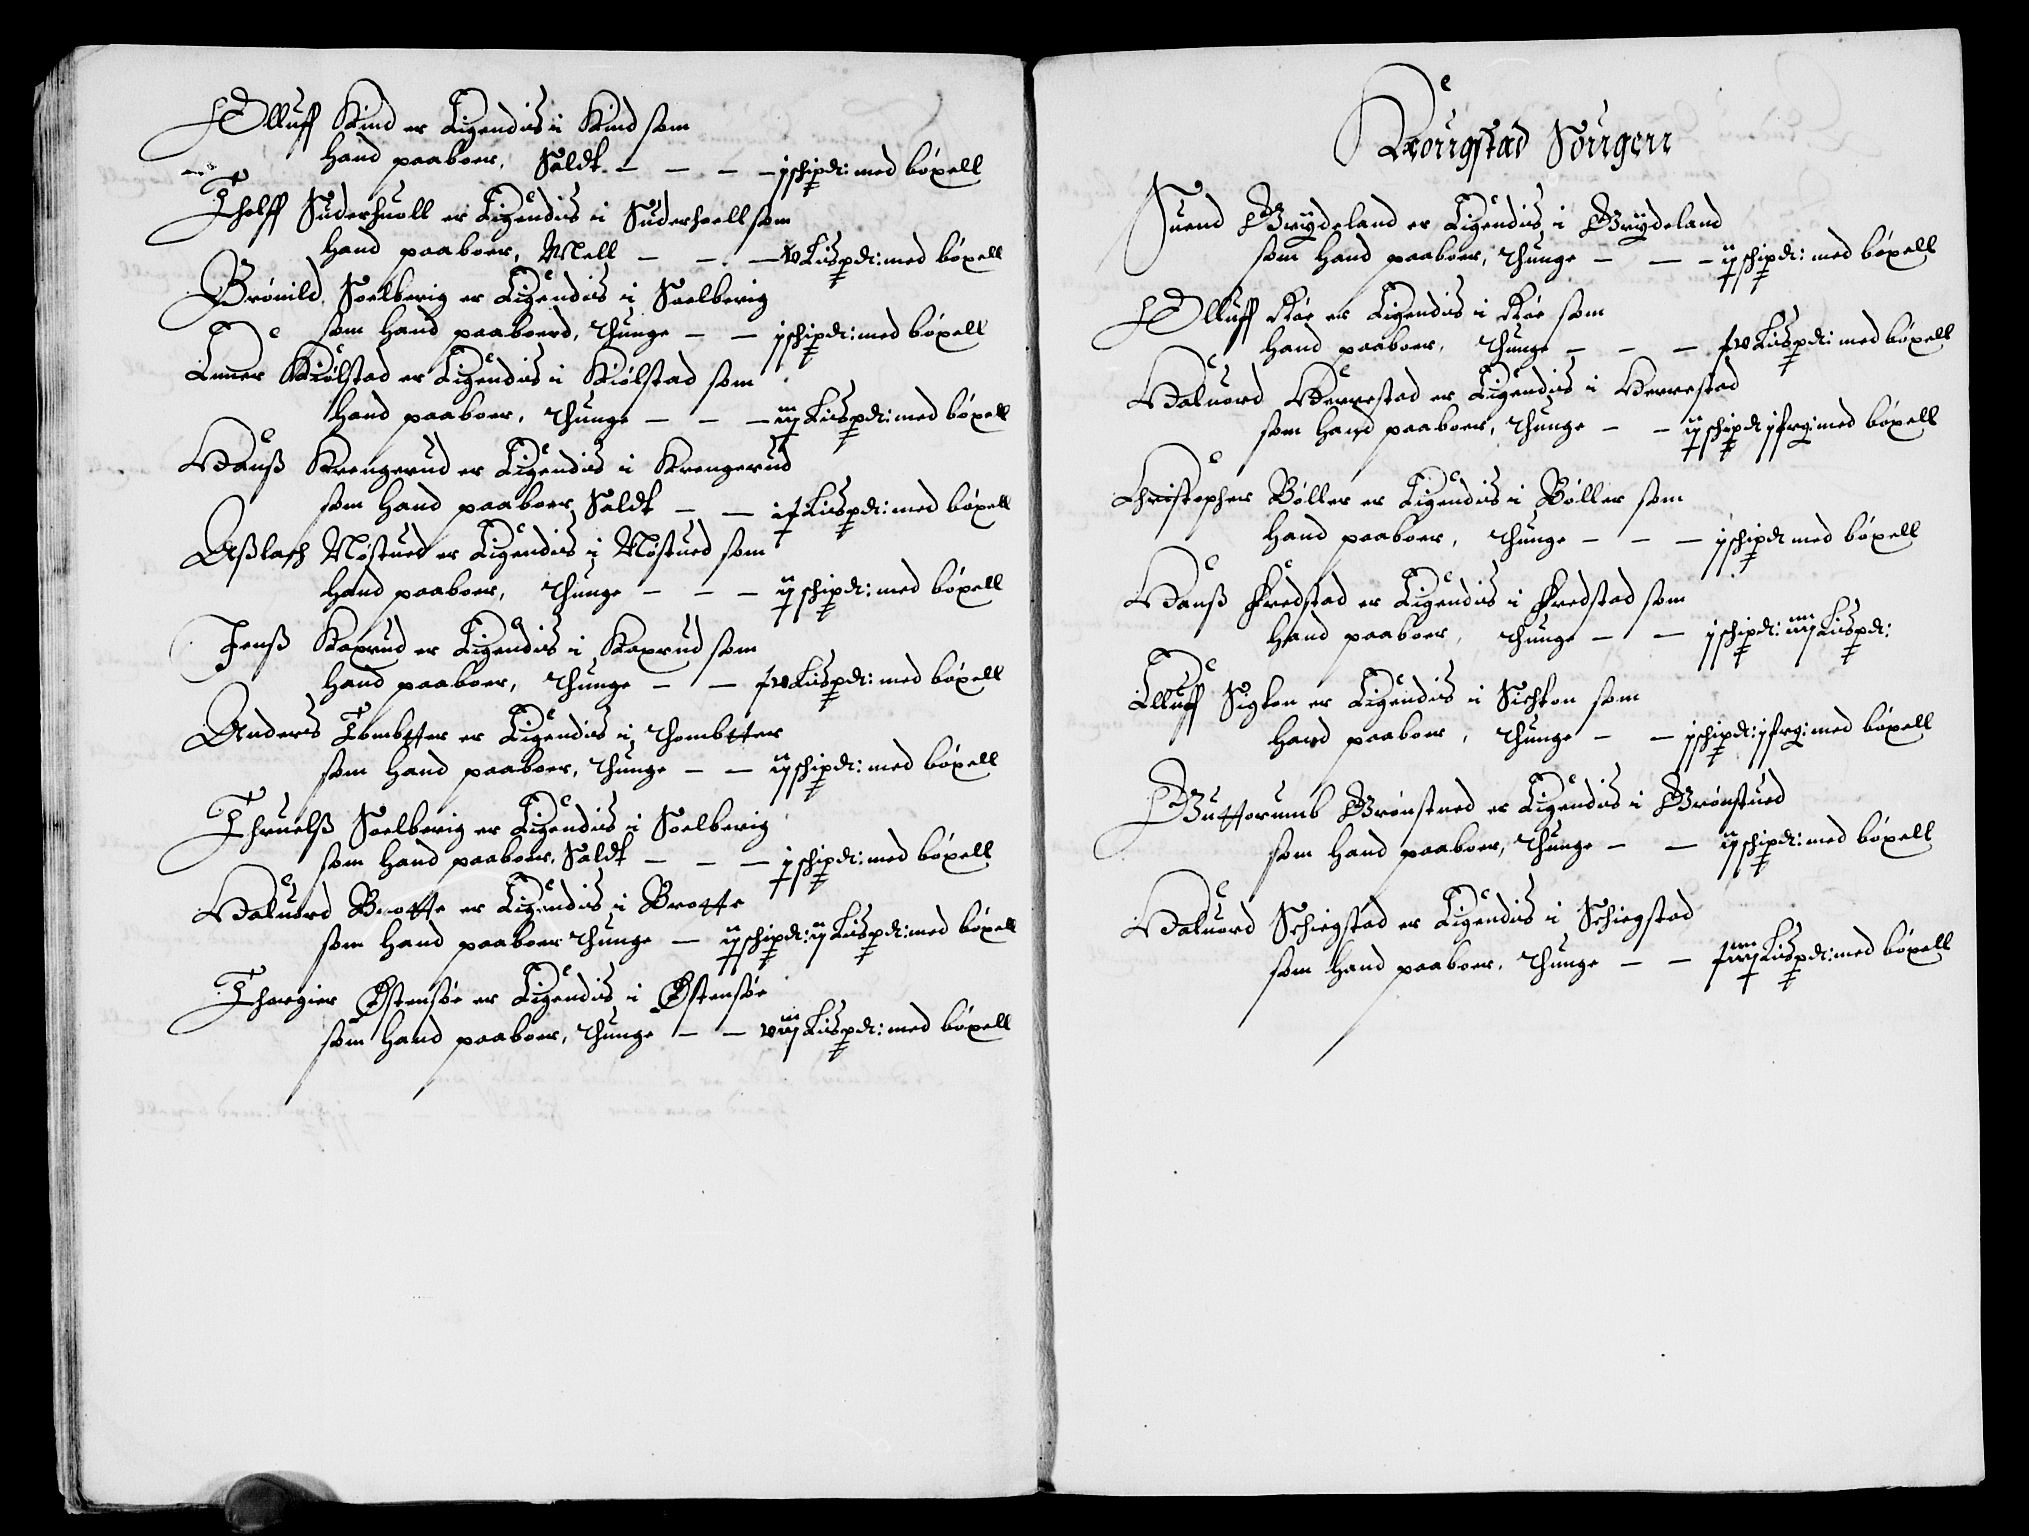 Olluff Kind er Eigendis i Kind som
hand paaboer, Saldt - - - j schipd: med bøxell
Tholff Suderhuoll er Eigendis i Suderhoell som
hand paaboer, Mell - - - Lispd: med bøxell
Brønild Soelberig er Eigendis i Soelberig
som hand paaboerd, Thunge - - j schipd: med bøxell
Enner Kiølstad er Eigendis i Kiølstad som
hand paaboer, Thunge - - - iij Lispd: med bøxell
Hanß Krengerud er Eigendis i Krengerud
som hand paaboer Saldt - - Lispd: med bøxell
Aßlach Nøstued er Eigendis i Nøstued som
hand paaboer, Thunge - - - ij schipd: med bøxell
Jenß Kaxrud er Eigendis i Kaxrud som
hand paaboer, Thunge - - xv Lispd: med bøxell
Anders Tombtter er Eigendis i Thombtter
som hand paaboer, Thunge - - ij schipd: med bøxell
Thruelß Soelberig er Eigendis i Soelberig
som hand paaboer, Saldt - - - j schipd: med bøxell
Haluord Brotte er Eigendis i Brotte
som hand paaboer Thunge - ij schipd: ij Lispd: med bøxell
Thorgier Østensøe er Eigendis i Østensøe
som hand paaboer, Thunge - - viij Lispd: med bøxell
Krougstad Sougenn
Suend Grydeland er Eigendis i Grydeland
som hand paaboer, Thunge - - - ij schipd: med bøxell
Olluff Røe er Eigendis i Røe som
hand paaboer, Thunge - - - xv Lispd: med bøxell
Haluord Verrestad er Eigendis i Verrestad
som hand paaboer, Thunge - - ij schipd j frg: med bøxell
Christopher Bøller er Eigendis i Bøller som
hand paaboer, Thunge - - - j schipd med bøxell
Hanß Fredstad er Eigendis i Fredstad som
hand paaboer, Thunge - - j schipd: iiij Lispd:
Elluff Sigkon er Eigendis i Sichkon som
hand paaboer, Thunge - - j schipd: j frg: med bøxell
Guttorumb Grønstued er Eigendis i Grønstued
som hand paaboer, Thunge - - ij schipd: med bøxell
Haluord Schiegstad er Eigendis i Schiegstad
som hand paaboer, Thunge - - Lispd: med bøxell